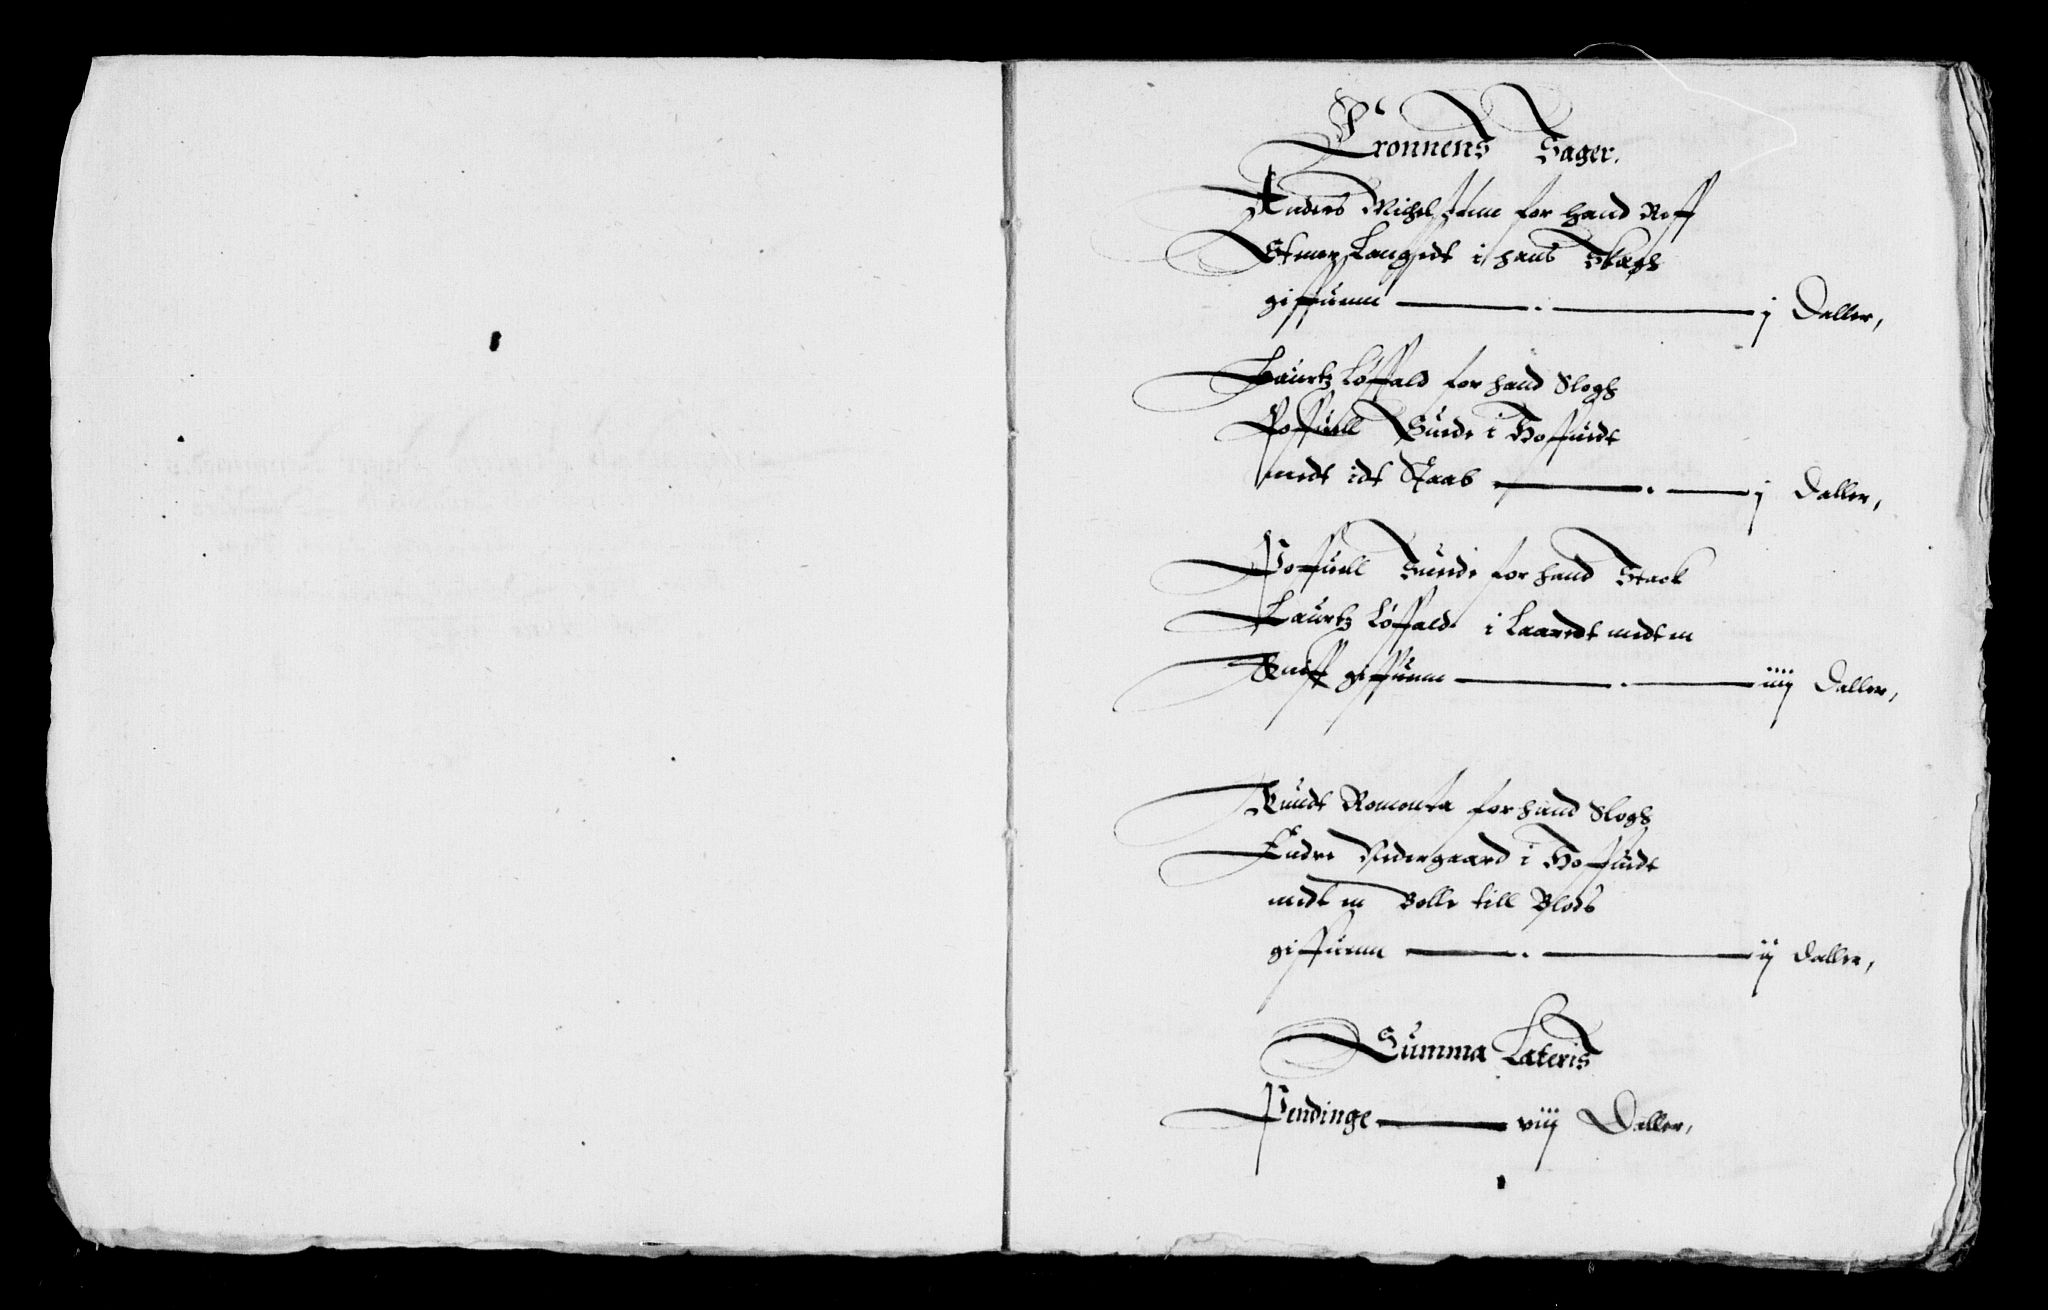 Cronnens Sager.
Anders Michelssønn for hand Reff
Stenn Langsedt i hans Skægh
giffuenn — . — j Daller,
Laurtz Løffald for hand Slogh
Poffuell Sunde i Hoffuedt
medt idt Staab — . — j Daller,
Poffuell Sunde for hand Stack
Laurtz Løffald i Laaredt medt en
Kniff giffuenn — . — iiij Daller,
Knudt Romonta for hand Slogh
Endre Nedergaard i Hoffuedt
medt en Bolle till Blods
giffuenn — . — ij Daller,
Summa Lateris
Pendinge — viij Daller,